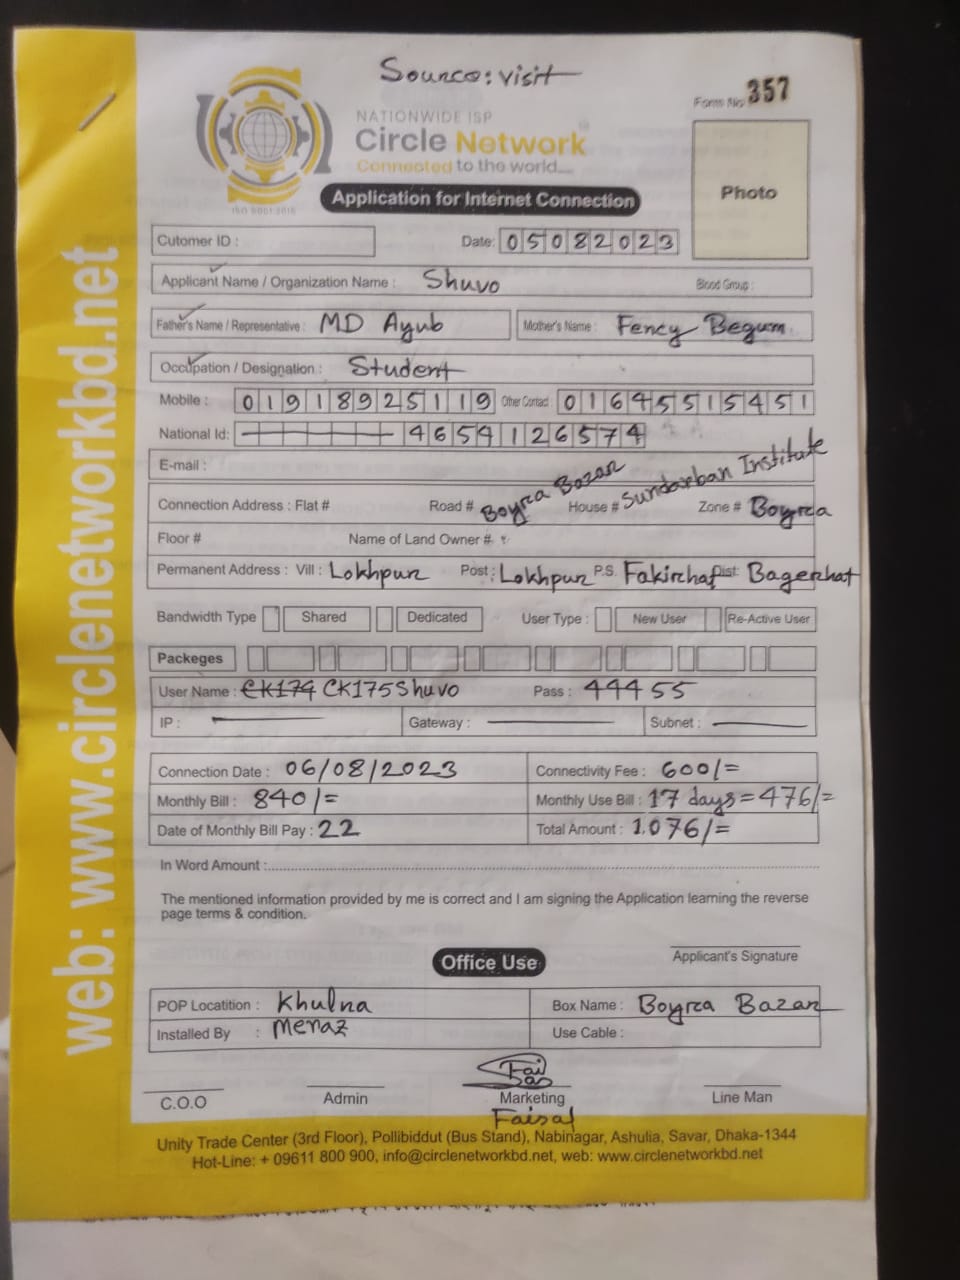 Source: visit
Form No 357
NATIONWIDE ISP
Circle Network
Connected to the world....
ISO 9001:2015
Application for Internet Connection
Photo
Cutomer ID :
Date: 05082023
Applicant Name / Organization Name : Shuvo Blood Group :
Father's Name / Representative : MD Ayub Mother's Name : Fency Begum
Occupation / Designation : Student
Mobile : 01918925119 Other Contact : 01645515451
National Id: 4654126574
E-mail :
Connection Address : Flat # Road # Boyra Bazar House # Sundarban Institute Zone # Boyra
Floor # Name of Land Owner #
Permanent Address : Vill : Lokhpur Post : Lokhpur P.S. Fakirhat Dist: Bagerhat
Bandwidth Type Shared Dedicated User Type : New User Re-Active User
Packeges
User Name : CK174 CK175Shuvo Pass : 44455
IP : Gateway : Subnet :
Connection Date : 06/08/2023 Connectivity Fee : 600/=
Monthly Bill : 840/= Monthly Use Bill : 17 days=476/=
Date of Monthly Bill Pay : 22 Total Amount : 1,076/=
In Word Amount :
The mentioned information provided by me is correct and I am signing the Application learning the reverse
page terms & condition.
Applicant's Signature
Office Use
POP Locatition : Khulna Box Name : Boyra Bazar
Installed By : Meraz Use Cable :
C.O.O Admin Marketing Line Man
Faisal
Unity Trade Center (3rd Floor), Pollibiddut (Bus Stand), Nabinagar, Ashulia, Savar, Dhaka-1344
Hot-Line: + 09611 800 900, info@circlenetworkbd.net, web: www.circlenetworkbd.net
web: www.circlenetworkbd.net